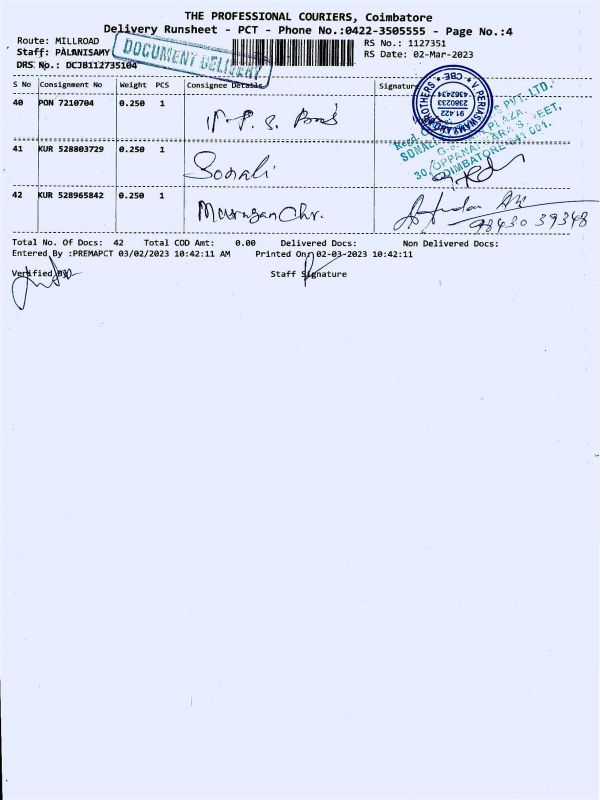 THE PROFESSIONAL COURIERS, Coimbatore
Delivery Runsheet - PCT - Phone No.:0422-3505555 - Page No.:4
Route: MILLROAD
RS No.: 1127351
Staff: PALANISAMY
RS Date: 02-Mar-2023
DRS No.: DCJB112735104
DOCUMENT DELIVERY
S No Consignment No Weight PCS Consignee Details Signature
40 PON 7210704 0.250 1
V. PERIASWAMY BROTHERS * CBE *
91-422
2380233
4362434
41 KUR 528803729 0.250 1 Sonali
PVT. LTD.
PLAZA
COIMBATORE-641 001.
42 KUR 528965842 0.250 1 Murugan Chr.
98430 39348
Total No. Of Docs: 42 Total COD Amt: 0.00 Delivered Docs: Non Delivered Docs:
Entered By :PREMAPCT 03/02/2023 10:42:11 AM Printed On: 02-03-2023 10:42:11
Verified By Staff Signature